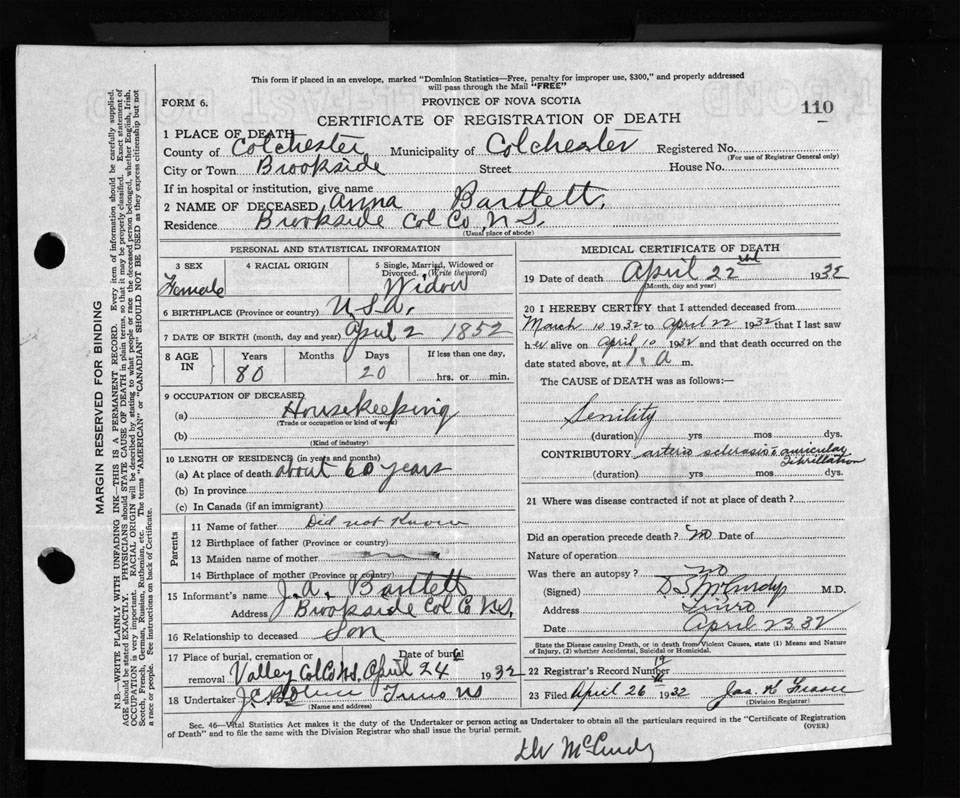 This form if placed in an envelope, marked "Dominion Statistics—Free, penalty for improper use, $300," and properly addressed
will pass through the Mail "FREE"
FORM 6.
PROVINCE OF NOVA SCOTIA
CERTIFICATE OF REGISTRATION OF DEATH
110
1 PLACE OF DEATH
County of Colchester Municipality of Colchester Registered No.
(For use of Registrar General only)
City or Town Brookside Street House No.
If in hospital or institution, give name
2 NAME OF DECEASED Anna Bartlett,
Residence Brookside Col Co, N.S,
(Usual place of abode)
PERSONAL AND STATISTICAL INFORMATION
3 SEX 4 RACIAL ORIGIN 5 Single, Married, Widowed or
Divorced. (Write the word)
Female Widow
6 BIRTHPLACE (Province or country) U.S.A.
7 DATE OF BIRTH (month, day and year) April 2 1852
8 AGE IN Years Months Days If less than one day,
80 20 hrs. or min.
9 OCCUPATION OF DECEASED
(a) Housekeeping
(Trade or occupation or kind of work)
(b)
(Kind of industry)
10 LENGTH OF RESIDENCE (in years and months)
(a) At place of death about 60 years
(b) In province
(c) In Canada (if an immigrant)
Parents
11 Name of father Did not Know
12 Birthplace of father (Province or country)
13 Maiden name of mother
14 Birthplace of mother (Province or country)
15 Informant's name J.A. Bartlett
Address Brookside Col Co N.S,
16 Relationship to deceased Son
17 Place of burial, cremation or Date of burial
removal Valley Col Co N.S. April 24 1932
18 Undertaker Truro N S
(Name and address)
MEDICAL CERTIFICATE OF DEATH
19 Date of death April 22nd 1932
(Month, day and year)
20 I HEREBY CERTIFY that I attended deceased from
March 10 1932 to April 22 1932 that I last saw
her alive on April 10 1932 and that death occurred on the
date stated above, at 1 A m.
The CAUSE of DEATH was as follows:—
Senility
(duration) yrs mos dys.
CONTRIBUTORY arterio sclerosis & auricular
fibrillation
(duration) yrs mos dys.
21 Where was disease contracted if not at place of death?
Did an operation precede death? no Date of
Nature of operation
Was there an autopsy? no
(Signed) D S McCurdy M.D.
Address Truro
Date April 23 32
State the Disease causing Death, or in death from Violent Causes, state (1) Means and Nature
of Injury, (2) whether Accidental, Suicidal or Homicidal.
22 Registrar's Record Number
23 Filed April 26 1932 Jas. K Fraser
(Division Registrar)
Sec. 46—Vital Statistics Act makes it the duty of the Undertaker or person acting as Undertaker to obtain all the particulars required in the "Certificate of Registration
of Death" and to file the same with the Division Registrar who shall issue the burial permit.
(OVER)
McCurdy
MARGIN RESERVED FOR BINDING
N.B.—WRITE PLAINLY WITH UNFADING INK—THIS IS A PERMANENT RECORD. Every item of information should be carefully supplied.
AGE should be stated EXACTLY. PHYSICIANS should STATE CAUSE OF DEATH in plain terms, so that it may be properly classified. Exact statement of
OCCUPATION is very important. RACIAL ORIGIN will be described by stating to what people or race the deceased person belonged, whether English, Irish,
Scotch, French, German, Russian, Ruthenian, etc. The terms "AMERICAN" or "CANADIAN" SHOULD NOT BE USED as they express citizenship but not
a race or people. See instructions on back of Certificate.